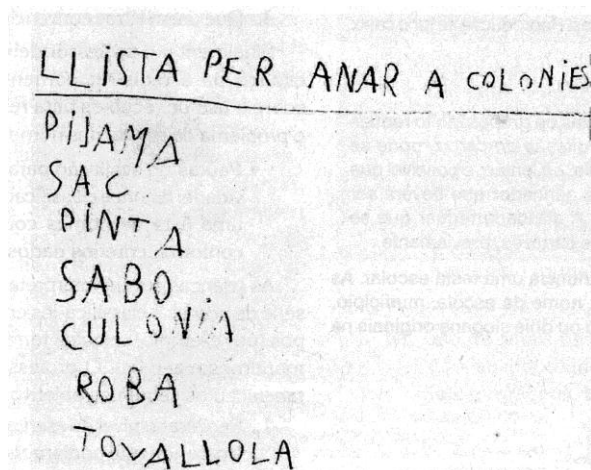 LLISTA PER ANAR A COLONIES
PIJAMA
SAC
PINTA
SABO
CULONIA
ROBA
TOVALLOLA